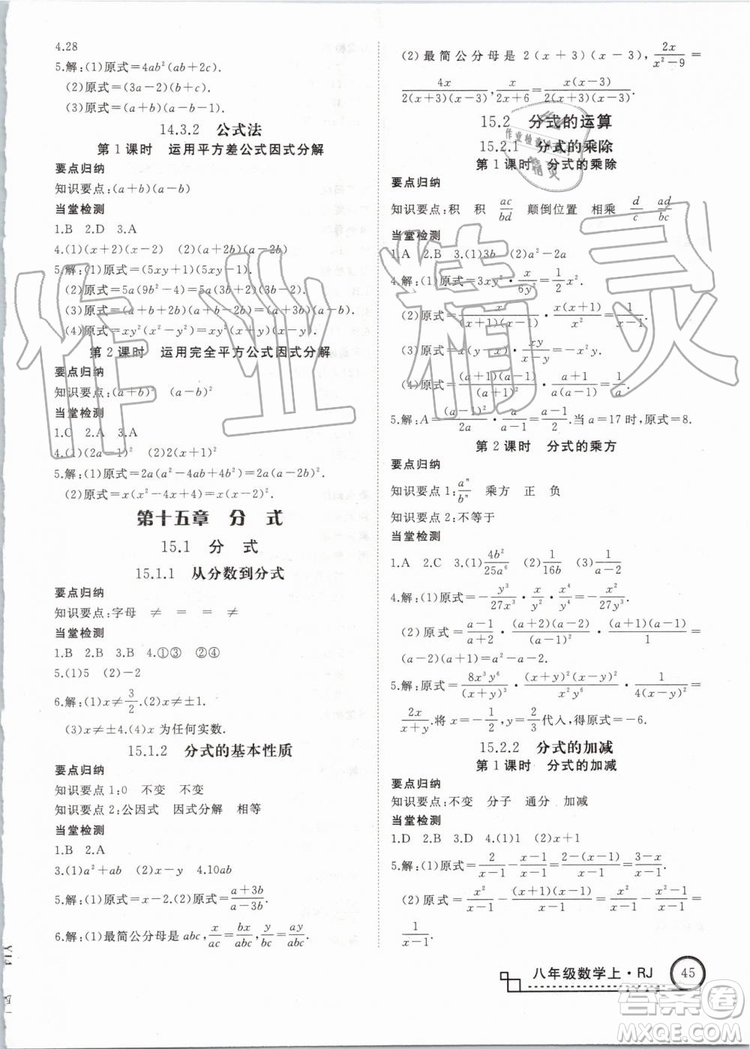 4.28
5.解:(1)原式=4ab²(ab+2c).
(2)原式=(3a-2)(b+c).
(3)原式=(a+b)(a+b-1).
14.3.2 公式法
第1课时 运用平方差公式因式分解
要点归纳
知识要点:(a+b)(a-b)
当堂检测
1.B 2.D 3.A
4.(1)(x+2)(x-2) (2)(a+2b)(a-2b)
5.解:(1)原式=(5xy+1)(5xy-1).
(2)原式=5a(9b²-4)=5a(3b+2)(3b-2).
(3)原式=(a+b+2b)(a+b-2b)=(a+3b)(a-b).
(4)原式=xy²(x²-y²)=xy²(x+y)(x-y).
第2课时 运用完全平方公式因式分解
要点归纳
知识要点:(a+b)² (a-b)²
当堂检测
1.C 2.A 3.A
4.(1)(x-2)² (2)2(x-1)²
5.解:(1)原式=2a(a²-4ab+4b²)=2a(a-2b)².
(2)原式=x(x²-2x+1)=x(x-1)².
第十五章 分 式
15.1 分 式
15.1.1 从分数到分式
要点归纳
知识要点:字母 ≠ = = ≠
当堂检测
1.B 2.B 3.B 4.①③ ②④
5.(1)5 (2)-2
6.解:(1)x≠3/2.(2)x≠-3.
(3)x≠±4.(4)x为任何实数.
15.1.2 分式的基本性质
要点归纳
知识要点1:0 不变 不变
知识要点2:公因式 因式分解 相等
当堂检测
1.B 2.A
3.(1)a²+ab (2)x-y 4.10ab
5.解:(1)原式=x-2.(2)原式=(a+3b)/(a-3b).
6.解:(1)最简公分母是abc,x/ac=bx/abc,y/bc=ay/abc.
(2)最简公分母是2(x+3)(x-3),2x/(x²-9)=
4x/2(x+3)(x-3),x/(2x+6)=x(x-3)/2(x+3)(x-3).
15.2 分式的运算
15.2.1 分式的乘除
第1课时 分式的乘除
要点归纳
知识要点:积 积 ac/bd 颠倒位置 相乘 d/c ad/bc
当堂检测
1.A 2.D 3.(1)3b/x (2)a²-2a
4.解:(1)原式=3xy²·x/6y=x²y/2.
(2)原式=x/(x+1)(x-1)·(x+1)/x²=1/(x²-x).
(3)原式=x(x-y)/xy·xy/(x-y)=x.
(4)原式=(a+1)(a-1)/(a+1)²·(a+1)/a(a-1)=1/a.
5.解:A=(a+1)(a-1)/(a-2)²·(a-2)/(a+1)=(a-1)/(a-2).当a=17时,原式=8.
第2课时 分式的乘方
要点归纳
知识要点1:aⁿ/bⁿ 乘方 正 负
知识要点2:不等于
当堂检测
1.A 2.C 3.(1)4b²/25a⁶ (2)1/16b (3)a/(a-2)
4.解:(1)原式=-y⁶/27x³·x²/y²·x/y=-y³/27.
(2)原式=(a-1)/(a+2)²·(a+2)(a-2)/(a+1)(a-1)·(a+1)(a-1)/1
5.解:(1)原式=8x³y⁶/(x+y)³·(x+y)(x-y)/xy²·(x+y)²/4x²y⁴(x-y)=
2x/(x+y).将x=1/2,y=1/3代入,得原式=-6.
15.2.2 分式的加减
第1课时 分式的加减
要点归纳
知识要点:不变 分子 通分 加减
当堂检测
1.D 2.C 3.A 4.(1)1 (2)x+1
5.解:(1)原式=2/(x-1)-(x-1)/(x-1)=(2-x+1)/(x-1)=(3-x)/(x-1).
(2)原式=x²/(x-1)-(x+1)=x²/(x-1)-(x²-1)/(x-1)=
1/(x-1).
八年级数学上·RJ 45
作业精灵
作业检查小帮手
精灵
答案卷
MXQE.COM